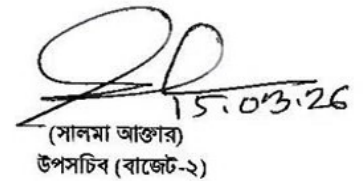 15.03.26
(সালমা আক্তার)
উপসচিব (বাজেট-২)